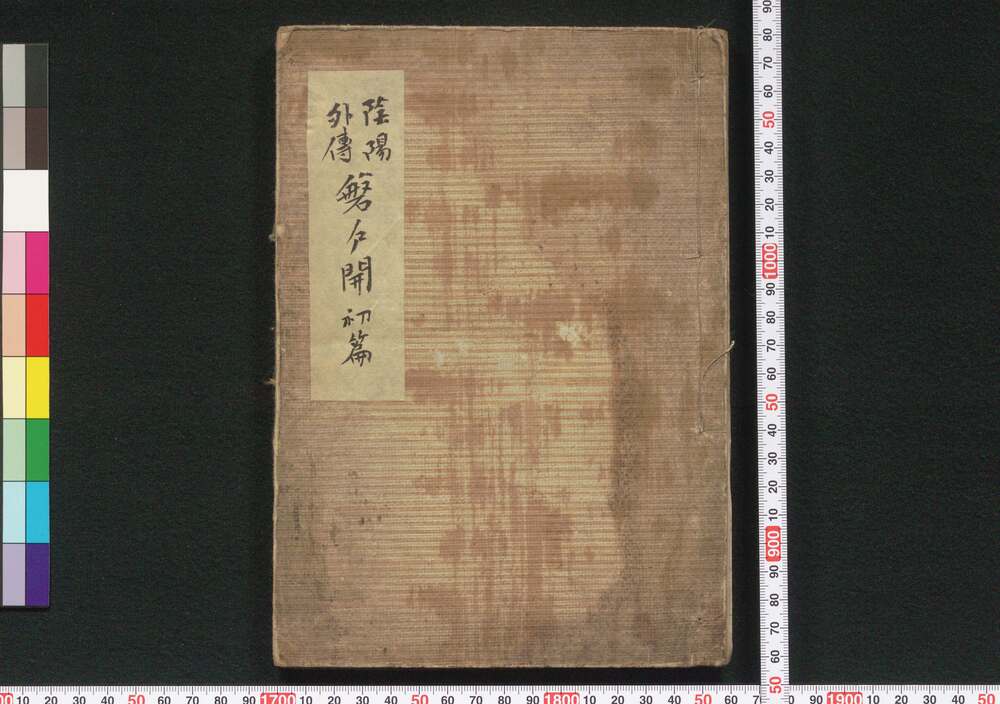 陰陽
外傳
磐戸開 初篇
90
80
70
60
50
40
30
20
10
1000
90
80
70
60
50
40
30
20
10
900
90
80
70
60
50
10 20 30 40 50 60 70 80 90 1700 10 20 30 40 50 60 70 80 90 1800 10 20 30 40 50 60 70 80 90 1900 10 20 30 40 50